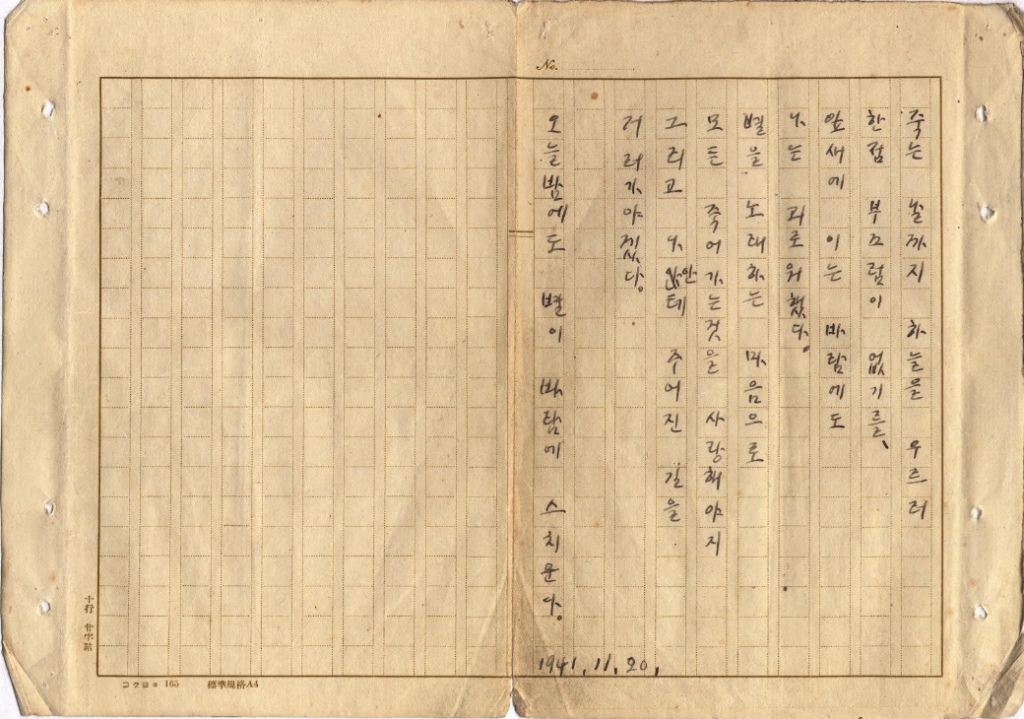 No.
죽는 날까지 하늘을 우르러
한점 부끄럼이 없기를、
잎새에 이는 바람에도
나는 괴로워했다.
별을 노래하는 마음으로
모든 죽어가는것을 사랑해야지
그리고 나안테 주어진 길을
거러가야겠다.
오늘밤에도 별이 바람에 스치운다.
1941.11.20.
十行 廿字詰
コクヨ 165 標準規格A4